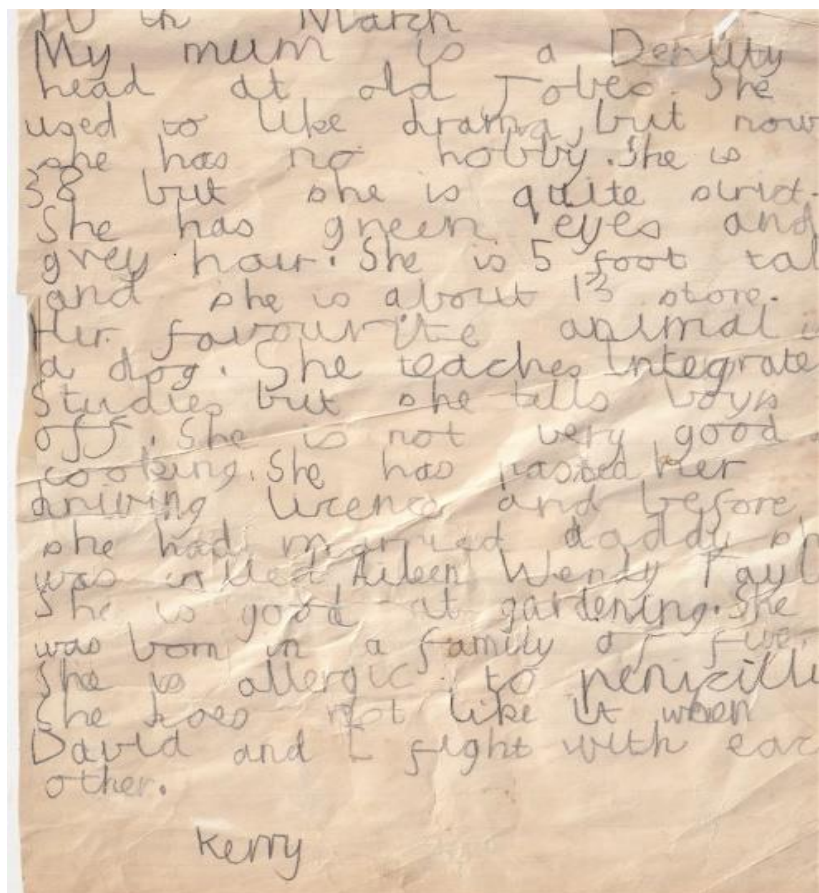 10 th March
My mum is a Deputy
head at old Jobes. She
used to like drama, but now
she has no hobby. She is
38 but she is quite strict.
She has green eyes and
grey hair. She is 5 foot tal
and she is about 13 stone.
Her favourite animal is
a dog. She teaches Integrate
Studies but she tells boys
off. She is not very good
cooking. She has passed her
driving licence and before
she had married daddy sh
was called Aileen Wendy Tayl
She is good at gardening. She
was born in a family of five.
She is allergic to penicilli
She does not like it when
David and I fight with eac
other.
Kerry